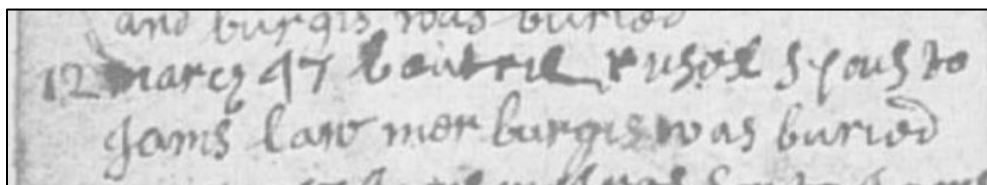 and burgis was buried
12 march 47 beatrie rusel spous to
Jams law mer burgis was buried